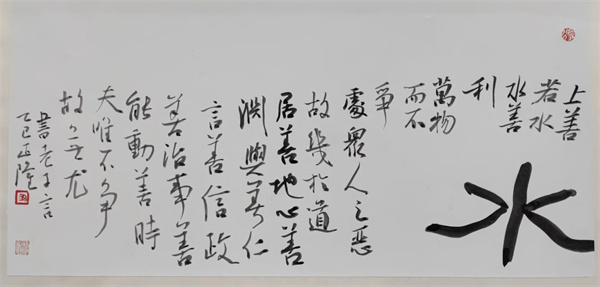 上善
若水
水善
利
萬物
而不
爭
水
處眾人之惡
故幾於道
居善地心善
淵與善仁
言善信政
善治事善
能動善時
夫唯不爭
故無尤
書老子言
乙巳正隆